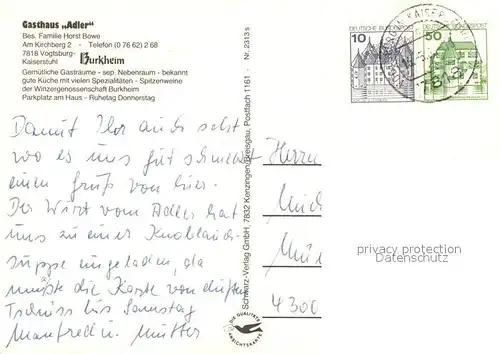 Gasthaus „Adler"
Bes. Familie Horst Bowe
Am Kirchberg 2 - Telefon (0 76 62) 2 68
7818 Vogtsburg-
Kaiserstuhl Burkheim
Gemütliche Gasträume - sep. Nebenraum - bekannt
gute Küche mit vielen Spezialitäten - Spitzenweine
der Winzergenossenschaft Burkheim
Parkplatz am Haus - Ruhetag Donnerstag
Damit Ihr auch seht
wo es uns gut schmeckt
einen Gruß von hier.
Der Wirt vom Adler hat
uns zu einer Knoblauch-
suppe eingeladen, da
mußte die Karte von duften
Tschüss bis Samstag
Manfred u. Mutter
Schwarz-Verlag GmbH, 7832 Kenzingen/Breisgau, Postfach 1161 - Nr. 2313 s
DIE QUALITÄTS
ANSICHTSKARTE
10
DEUTSCHE BUNDESPOST
50
DEUTSCHE BUNDESPOST
Herrn
4300
privacy protection
Datenschutz